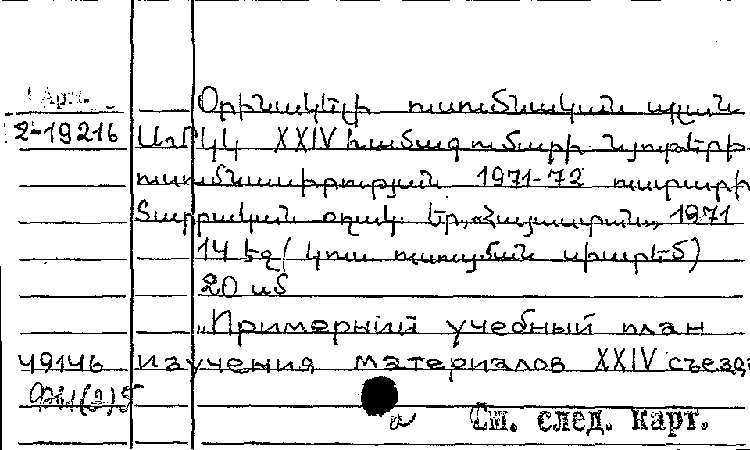 Арм.
Օրինակելի ուսումնական պլան
2-19216 ՍՄԿԿ XXIV համագումարի նյութերի
ուսումնասիրության 1971-72 ուստարի
Տարրական օղակ. Եր., «Հայաստան», 1971
14 էջ (կուս. ուսուցման սիստեմ)
20 սմ
„Примерний учебный план
49146 изучения материалов XXIV съезда
См. след. карт.